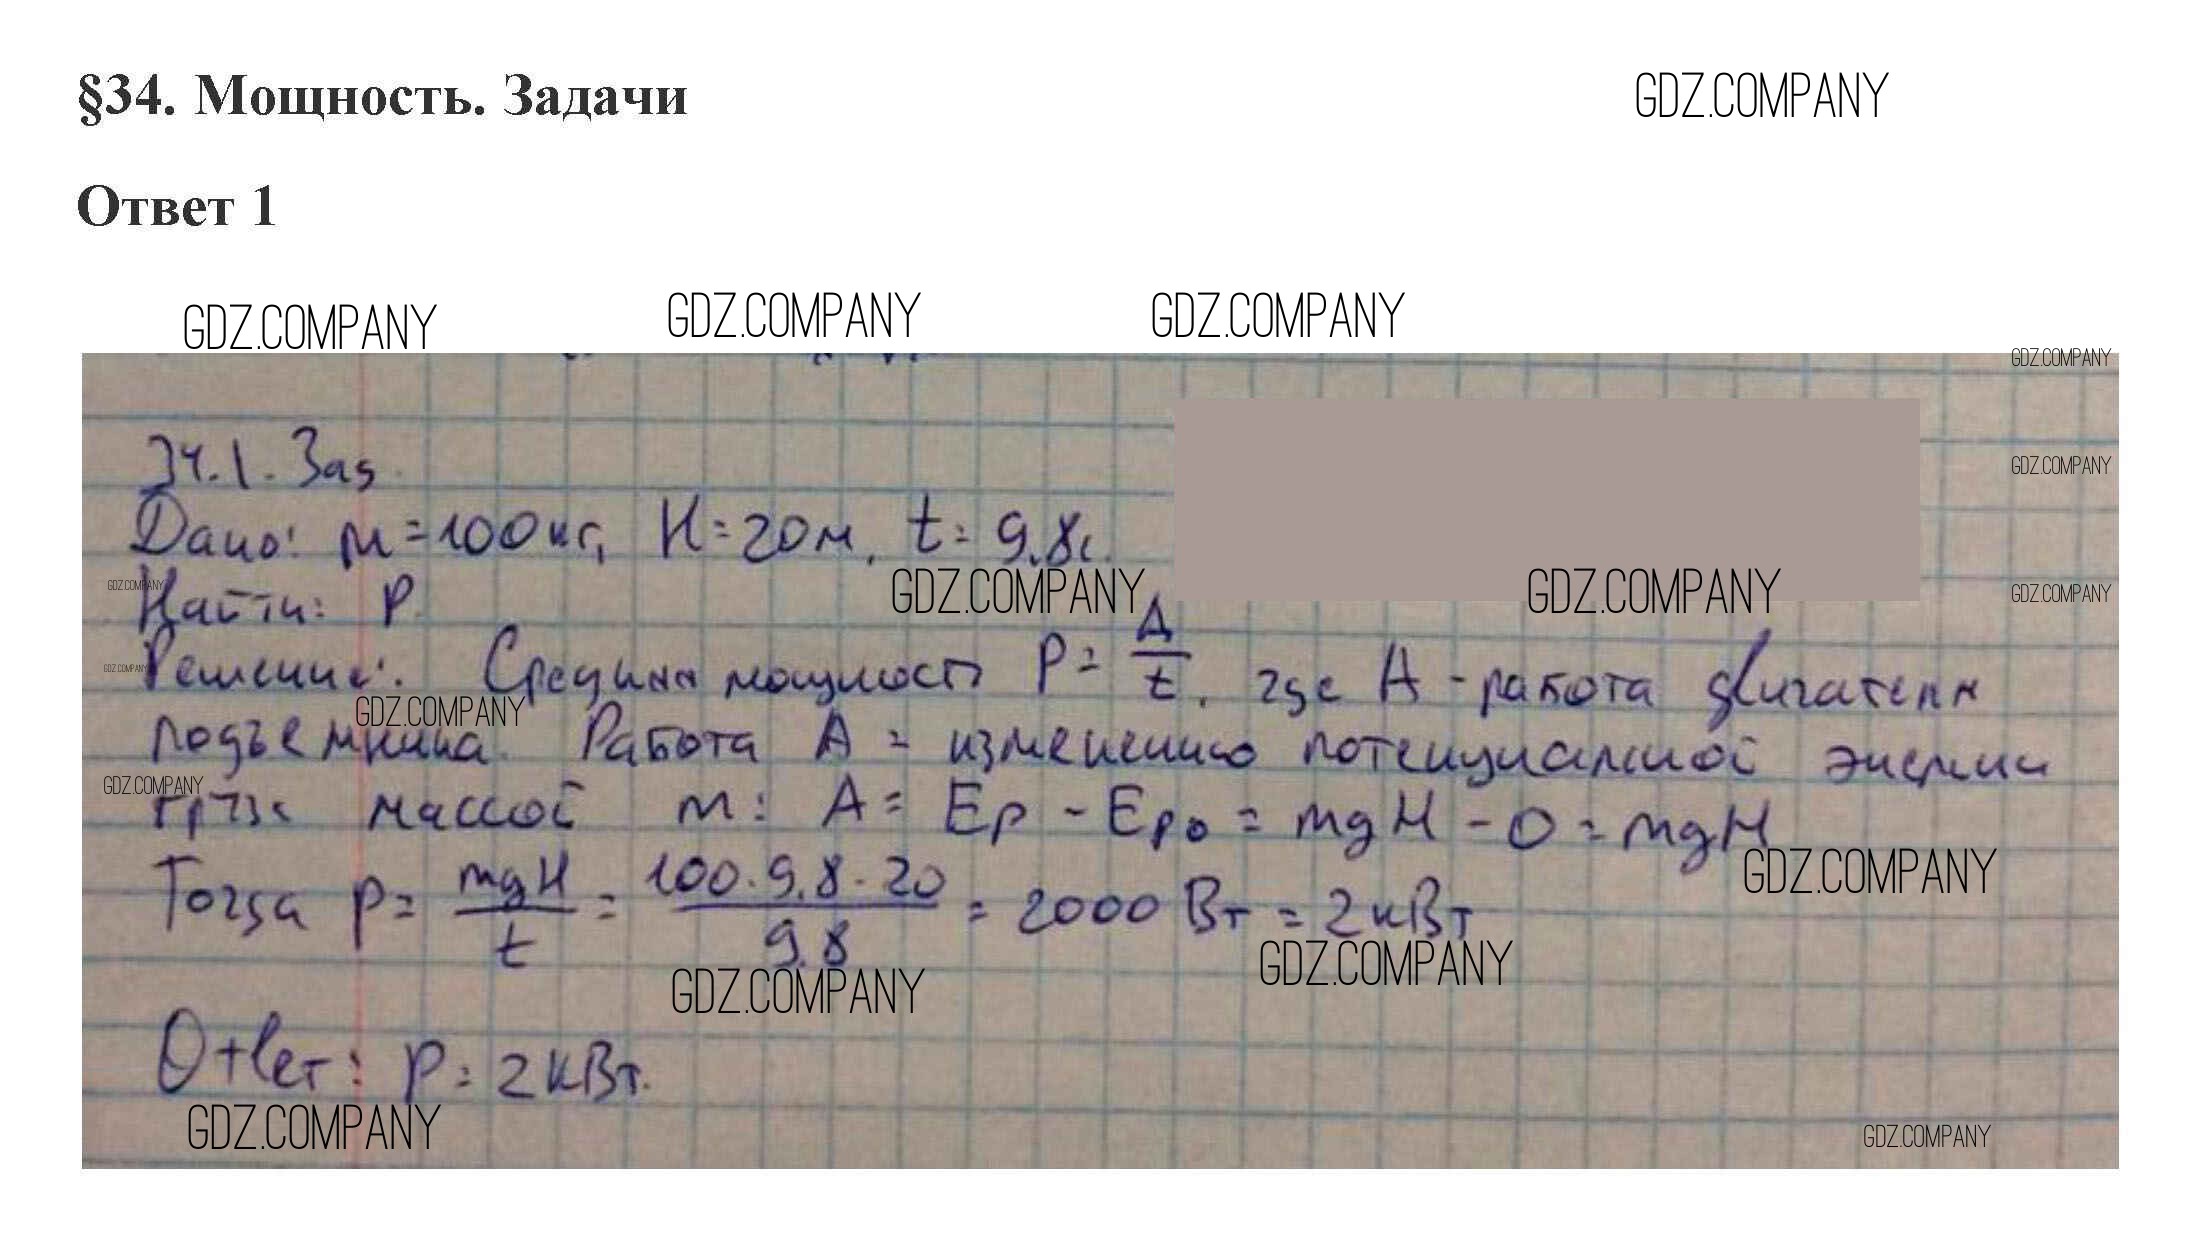 §34. Мощность. Задачи
GDZ.COMPANY
Ответ 1
GDZ.COMPANY GDZ.COMPANY GDZ.COMPANY
GDZ.COMPANY
34.1. Зад.
GDZ.COMPANY
Дано: m=100кг, H=20м, t=9.8с.
GDZ.COMPANY GDZ.COMPANY GDZ.COMPANY GDZ.COMPANY
Найти: P.
Решение: Средняя мощность P = A/t, где A - работа двигателя
GDZ.COMPANY GDZ.COMPANY
подъемника. Работа A = изменению потенциальной энергии
GDZ.COMPANY
груза массой m: A = Ep - Ep0 = mgH - 0 = mgH
GDZ.COMPANY
Тогда P = mgH/t = 100·9.8·20/9.8 = 2000 Вт = 2 кВт
GDZ.COMPANY GDZ.COMPANY
Ответ: P = 2 кВт.
GDZ.COMPANY GDZ.COMPANY